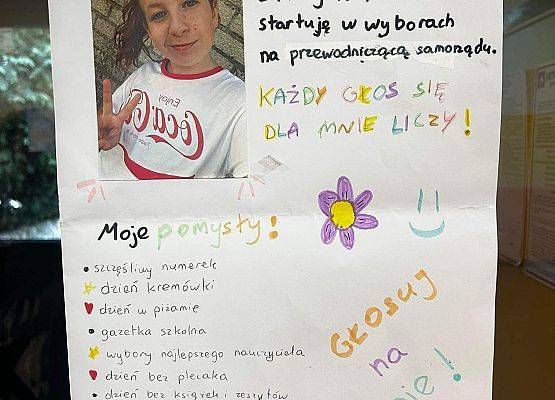 startuję w wyborach
na przewodniczącą samorządu.
KAŻDY GŁOS SIĘ
DLA MNIE LICZY!
Enjoy
Coca-C
Moje pomysły!
• szczęśliwy numerek
dzień kremówki
dzień w piżamie
• gazetka szkolna
wybory najlepszego nauczyciela
dzień bez plecaka
• dzień bez książek i zeszytów
Głosuj
na